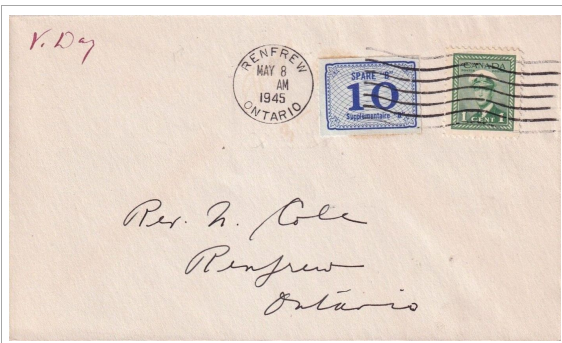 V. Day
RENFREW
MAY 8
AM
1945
ONTARIO
SPARE "B"
10
Supplementaire "B"
CANADA
1 CENT 1
Rev. N. Cole
Renfrew
Ontario